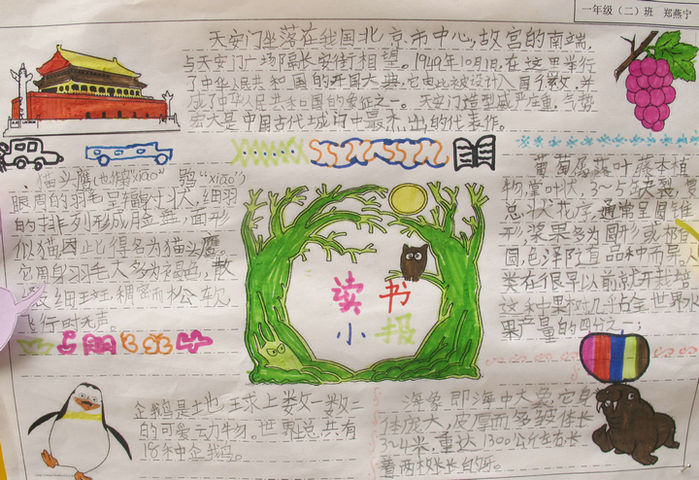 一年级（二）班 郑燕宁
天安门坐落在我国北京市中心,故宫的南端,
与天安门广场隔长安街相望。1949年10月1日,在这里举行
了中华人民共和国的开国大典,它由此被设计入国徽,并
成了中华人民共和国的象征之一。天安门造型威严庄重,气势
宏大是中国古代城门中最杰出的代表作。
猫头鹰(也 "xiāo") "xiāo")
眼周的羽毛呈辐射状,细羽
的排列形成脸盘,面形
似猫因此得名为猫头鹰
它周身羽毛大多为褐色,散
细斑,稠密而松软
飞行时无声。
葡萄属落叶藤本植
物掌叶状,3~5缺裂
总状花序,通常呈圆锥
形,浆果多为圆形或椭
圆
类在很早以前就开始
这种果树几乎占全世界
果产量的四分之一;
读书
小报
企鹅是地球上数一数二
的可爱动物。世界总共有
18种企鹅。
海象即海中大象,它身
体庞大,皮厚而多皱体长
3~4米,重达1300公斤左右长
着两枚长长白牙。